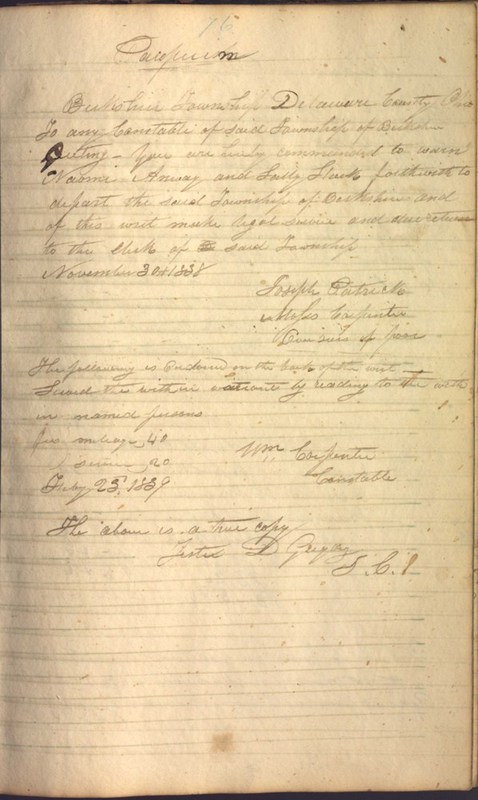 16
Pauperism
Berkshire Township Delaware County Ohio
To any Constable of said Township of Berkshire
Greeting - You are hereby commanded to warn
Naomi Anway and Sally forthwith to
depart the said Township of Berkshire and
of this writ make legal service and due return
to the Clerk of said Township
November 30th 1838
Joseph Patrick
Moses Carpenter
Overseers of poor
The following is Endorsed on the back of the writ
Served the within by reading to the with
in named persons
fees mileage, 40
service, 20
Wm Carpenter
Constable
Feby 25, 1839
The above is a true copy
Teste D Gregory
T. C.